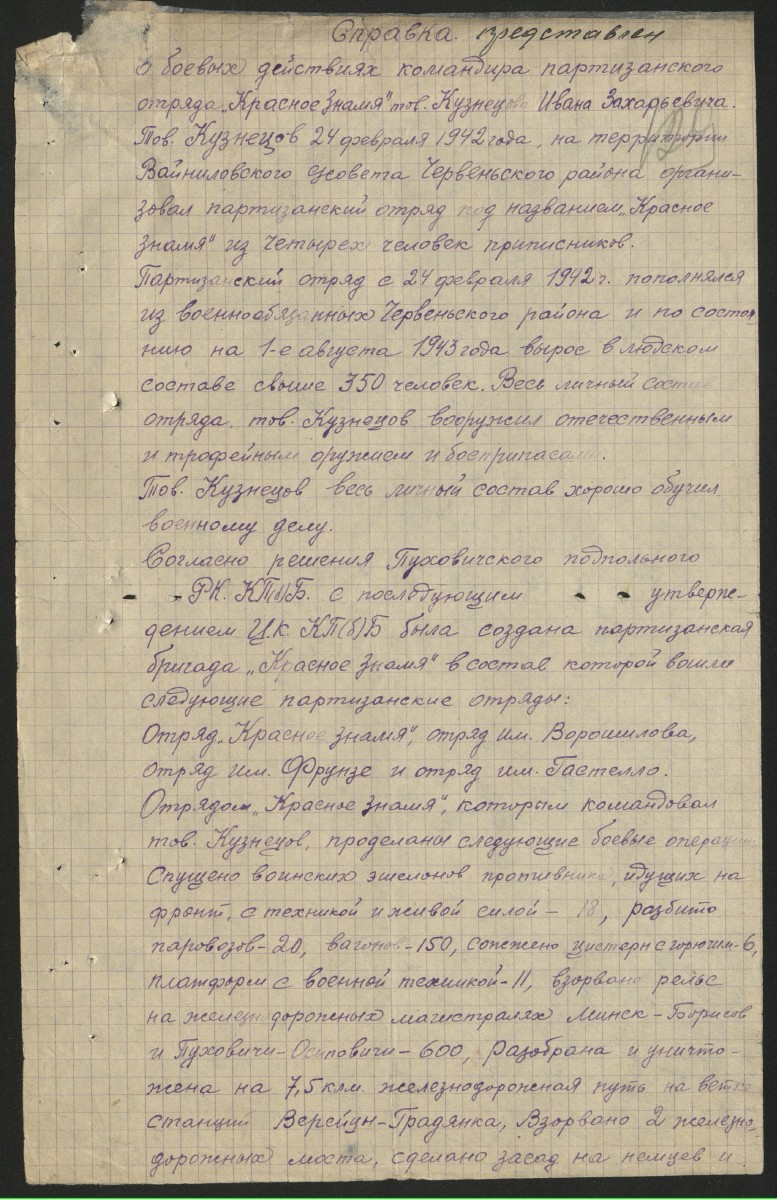 Справка. представлен
О боевых действиях командира партизанского
отряда „Красное Знамя" тов. Кузнецова Ивана Захарьевича.
Тов. Кузнецов 24 февраля 1942 года, на территории
Вайниловского с/совета Червеньского района органи-
зовал партизанский отряд под названием „Красное
знамя" из четырех человек приписников.
Партизанский отряд с 24 февраля 1942 г. пополнялся
из военнообязанных Червеньского района и по состоя
нию на 1-е августа 1943 года вырос в людском
составе свыше 350 человек. Весь личный состав
отряда, тов. Кузнецов вооружил отечественным
и трофейным оружием и боеприпасами.
Тов. Кузнецов весь личный состав хорошо обучил
военному делу.
Согласно решения Пуховичского подпольного
РК. КП(б)Б. с последующим утверж-
дением Ц.К. КП(б)Б была создана партизанская
бригада „Красное знамя" в состав которой вошли
следующие партизанские отряды:
Отряд „Красное знамя", отряд им. Ворошилова,
отряд им. Фрунзе и отряд им. Гастелло.
Отрядом „Красное знамя", которым командовал
тов. Кузнецов, проделаны следующие боевые операции
Спущено воинских эшелонов противника, идущих на
фронт, с техникой и живой силой - 18, разбито
паровозов-20, вагонов-150, сожжено цистерн с горючим-6,
платформ с военной техникой-11, взорвано рельс
на железнодорожных магистралях Минск-Борисов
и Пуховичи-Осиповичи-600, Разобрана и уничто-
жена на 7,5 клм. железнодорожная путь на ветке
станций Верейцы-Градянка, Взорвано 2 железно-
дорожных моста, сделано засад на немцев и